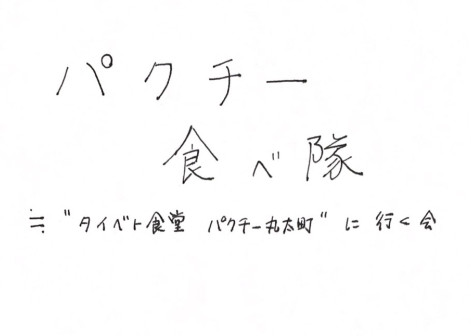 パクチー
食べ隊
≒ "タイベト食堂 パクチー丸太町" に 行く会